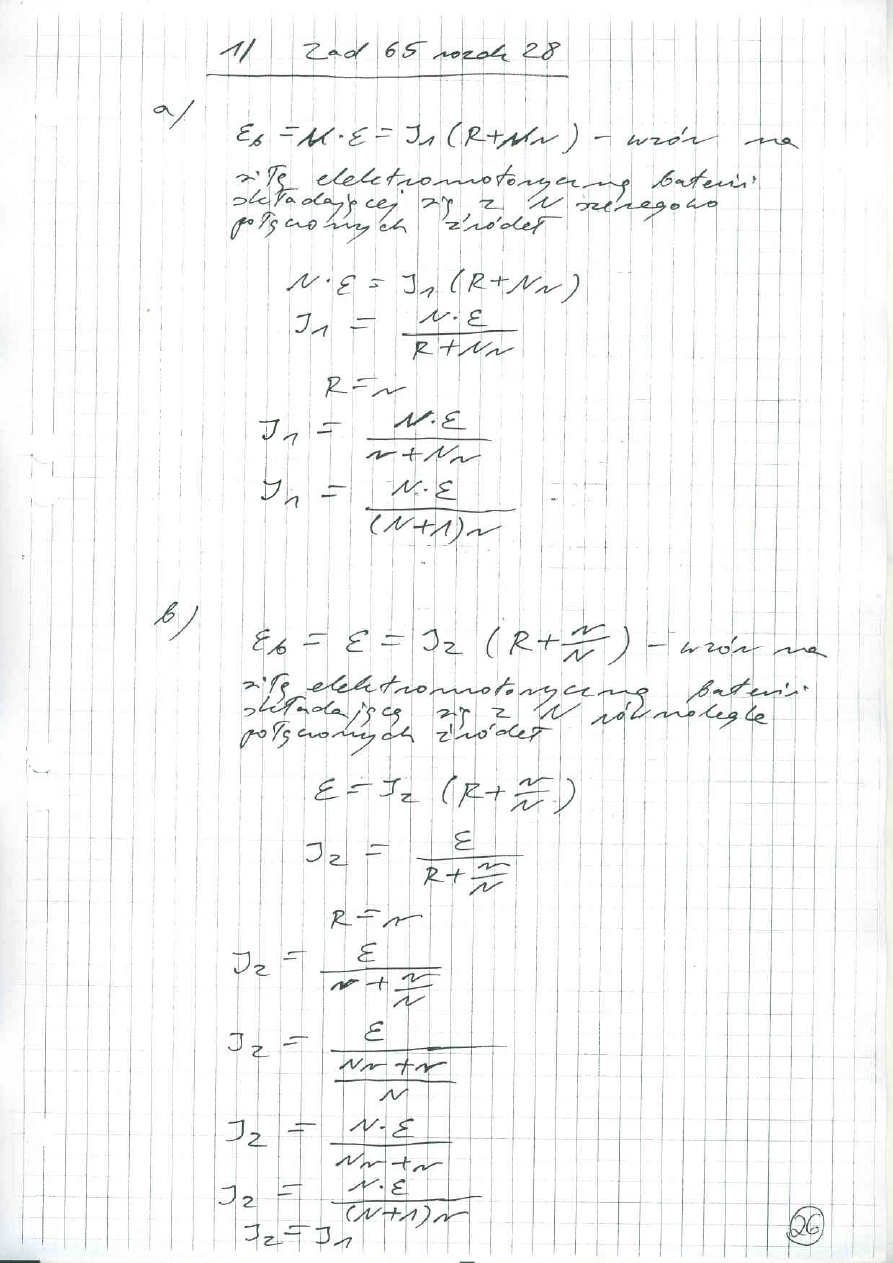 1/ Zad 65 rozdz 28
a/
ε_b = N·ε = I₁(R+Nr) – wzór na
siłę elektromotoryczną baterii
składającej się z N szeregowo
połączonych źródeł
N·ε = I₁(R+Nr)
I₁ = N·ε / (R+Nr)
R = r
I₁ = N·ε / (r+Nr)
I₁ = N·ε / ((N+1)r)
b)
ε_b = ε = I₂ (R + r/N) – wzór na
siłę elektromotoryczną baterii
składającą się z N równolegle
połączonych źródeł
ε = I₂ (R + r/N)
I₂ = ε / (R + r/N)
R = r
I₂ = ε / (r + r/N)
I₂ = ε / ((Nr+r)/N)
I₂ = N·ε / (Nr+r)
I₂ = N·ε / ((N+1)r)
I₂ = I₁
26